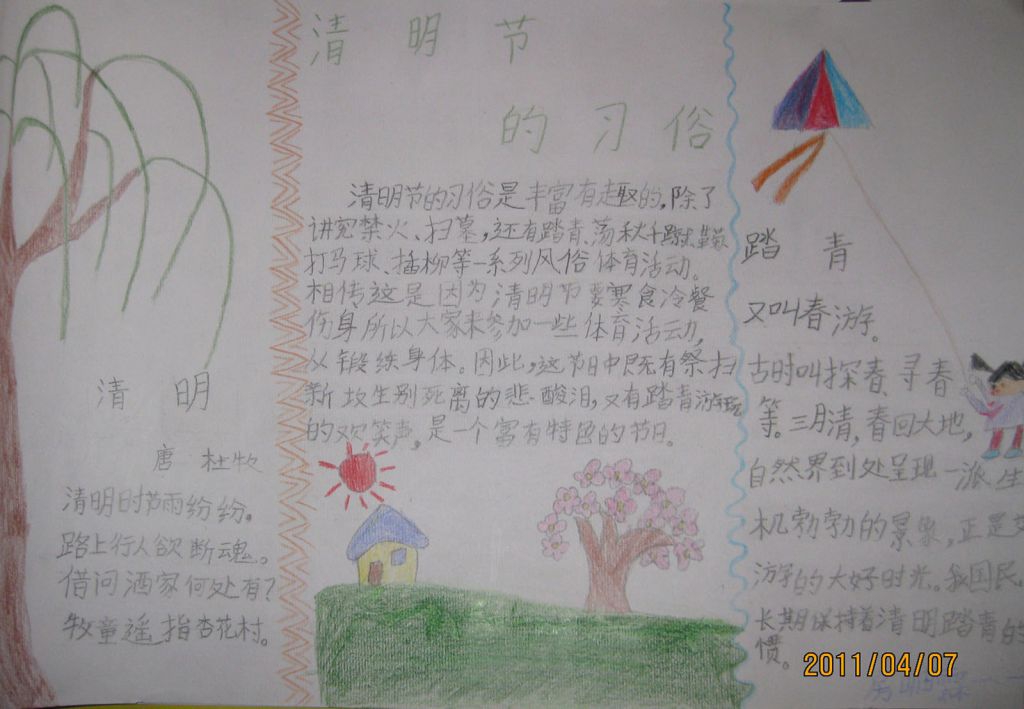 清明
唐 杜牧
清明时节雨纷纷。
路上行人欲断魂。
借问酒家何处有?
牧童遥指杏花村。
清明节
的习俗
清明节的习俗是丰富有趣的,除了
讲究禁火、扫墓,还有踏青、荡秋千、蹴鞠、
打马球、插柳等一系列风俗体育活动。
相传这是因为清明节要寒食冷餐
伤身所以大家来参加一些体育活动,
以锻练身体。因此,这节日中既有祭扫
新坟生别死离的悲酸泪,又有踏青游玩
的欢笑声,是一个富有特色的节日。
踏青
又叫春游。
古时叫探春、寻春
等。三月清,春回大地,
自然界到处呈现一派生
机勃勃的景象,正是
游的大好时光。我国民
长期保持着清明踏青的
惯。
2011/04/07